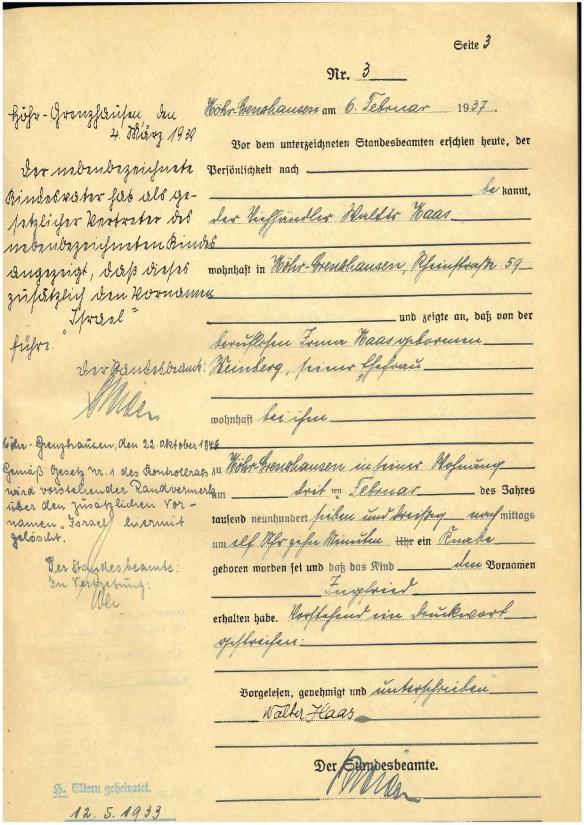 Seite 3
Nr. 3
Höhr-Grenzhausen am 6. Februar 1937.
Vor dem unterzeichneten Standesbeamten erschien heute, der
Persönlichkeit nach
be kannt,
der Viehhändler Walter Haas
wohnhaft in Höhr-Grenzhausen, Rheinstraße 59
und zeigte an, daß von der
berufslosen Irma Haas geborenen
Weinberg, seiner Ehefrau
wohnhaft bei ihm
zu Höhr-Grenzhausen in seiner Wohnung
am drit ten Februar des Jahres
tausend neunhundert sieben und dreißig nachmittags
um elf Uhr zehn Minuten Uhr ein Knabe
geboren worden sei und daß das Kind den Vornamen
Ingfried
erhalten habe. Vorstehend ein Druckwort
gestrichen.
Vorgelesen, genehmigt und unterschrieben
Walter Haas
Der Standesbeamte.
Höhr-Grenzhausen, den
4. März 1939
Der nebenbezeichnete
Kindesvater hat als ge-
setzlicher Vertreter des
nebenbezeichneten Kindes
angezeigt, daß dieses
zusätzlich den Vornamen
"Israel"
führe.
Der Standesbeamte:
Höhr-Grenzhausen, den 22. Oktober 1946
Gemäß Gesetz Nr. 1 des Kontrollrats
wird vorstehender Randvermerk
über den zusätzlichen Vor-
namen "Israel" hiermit
gelöscht.
Der Standesbeamte:
In Vertretung:
H. Eltern geheiratet.
12.5.1933